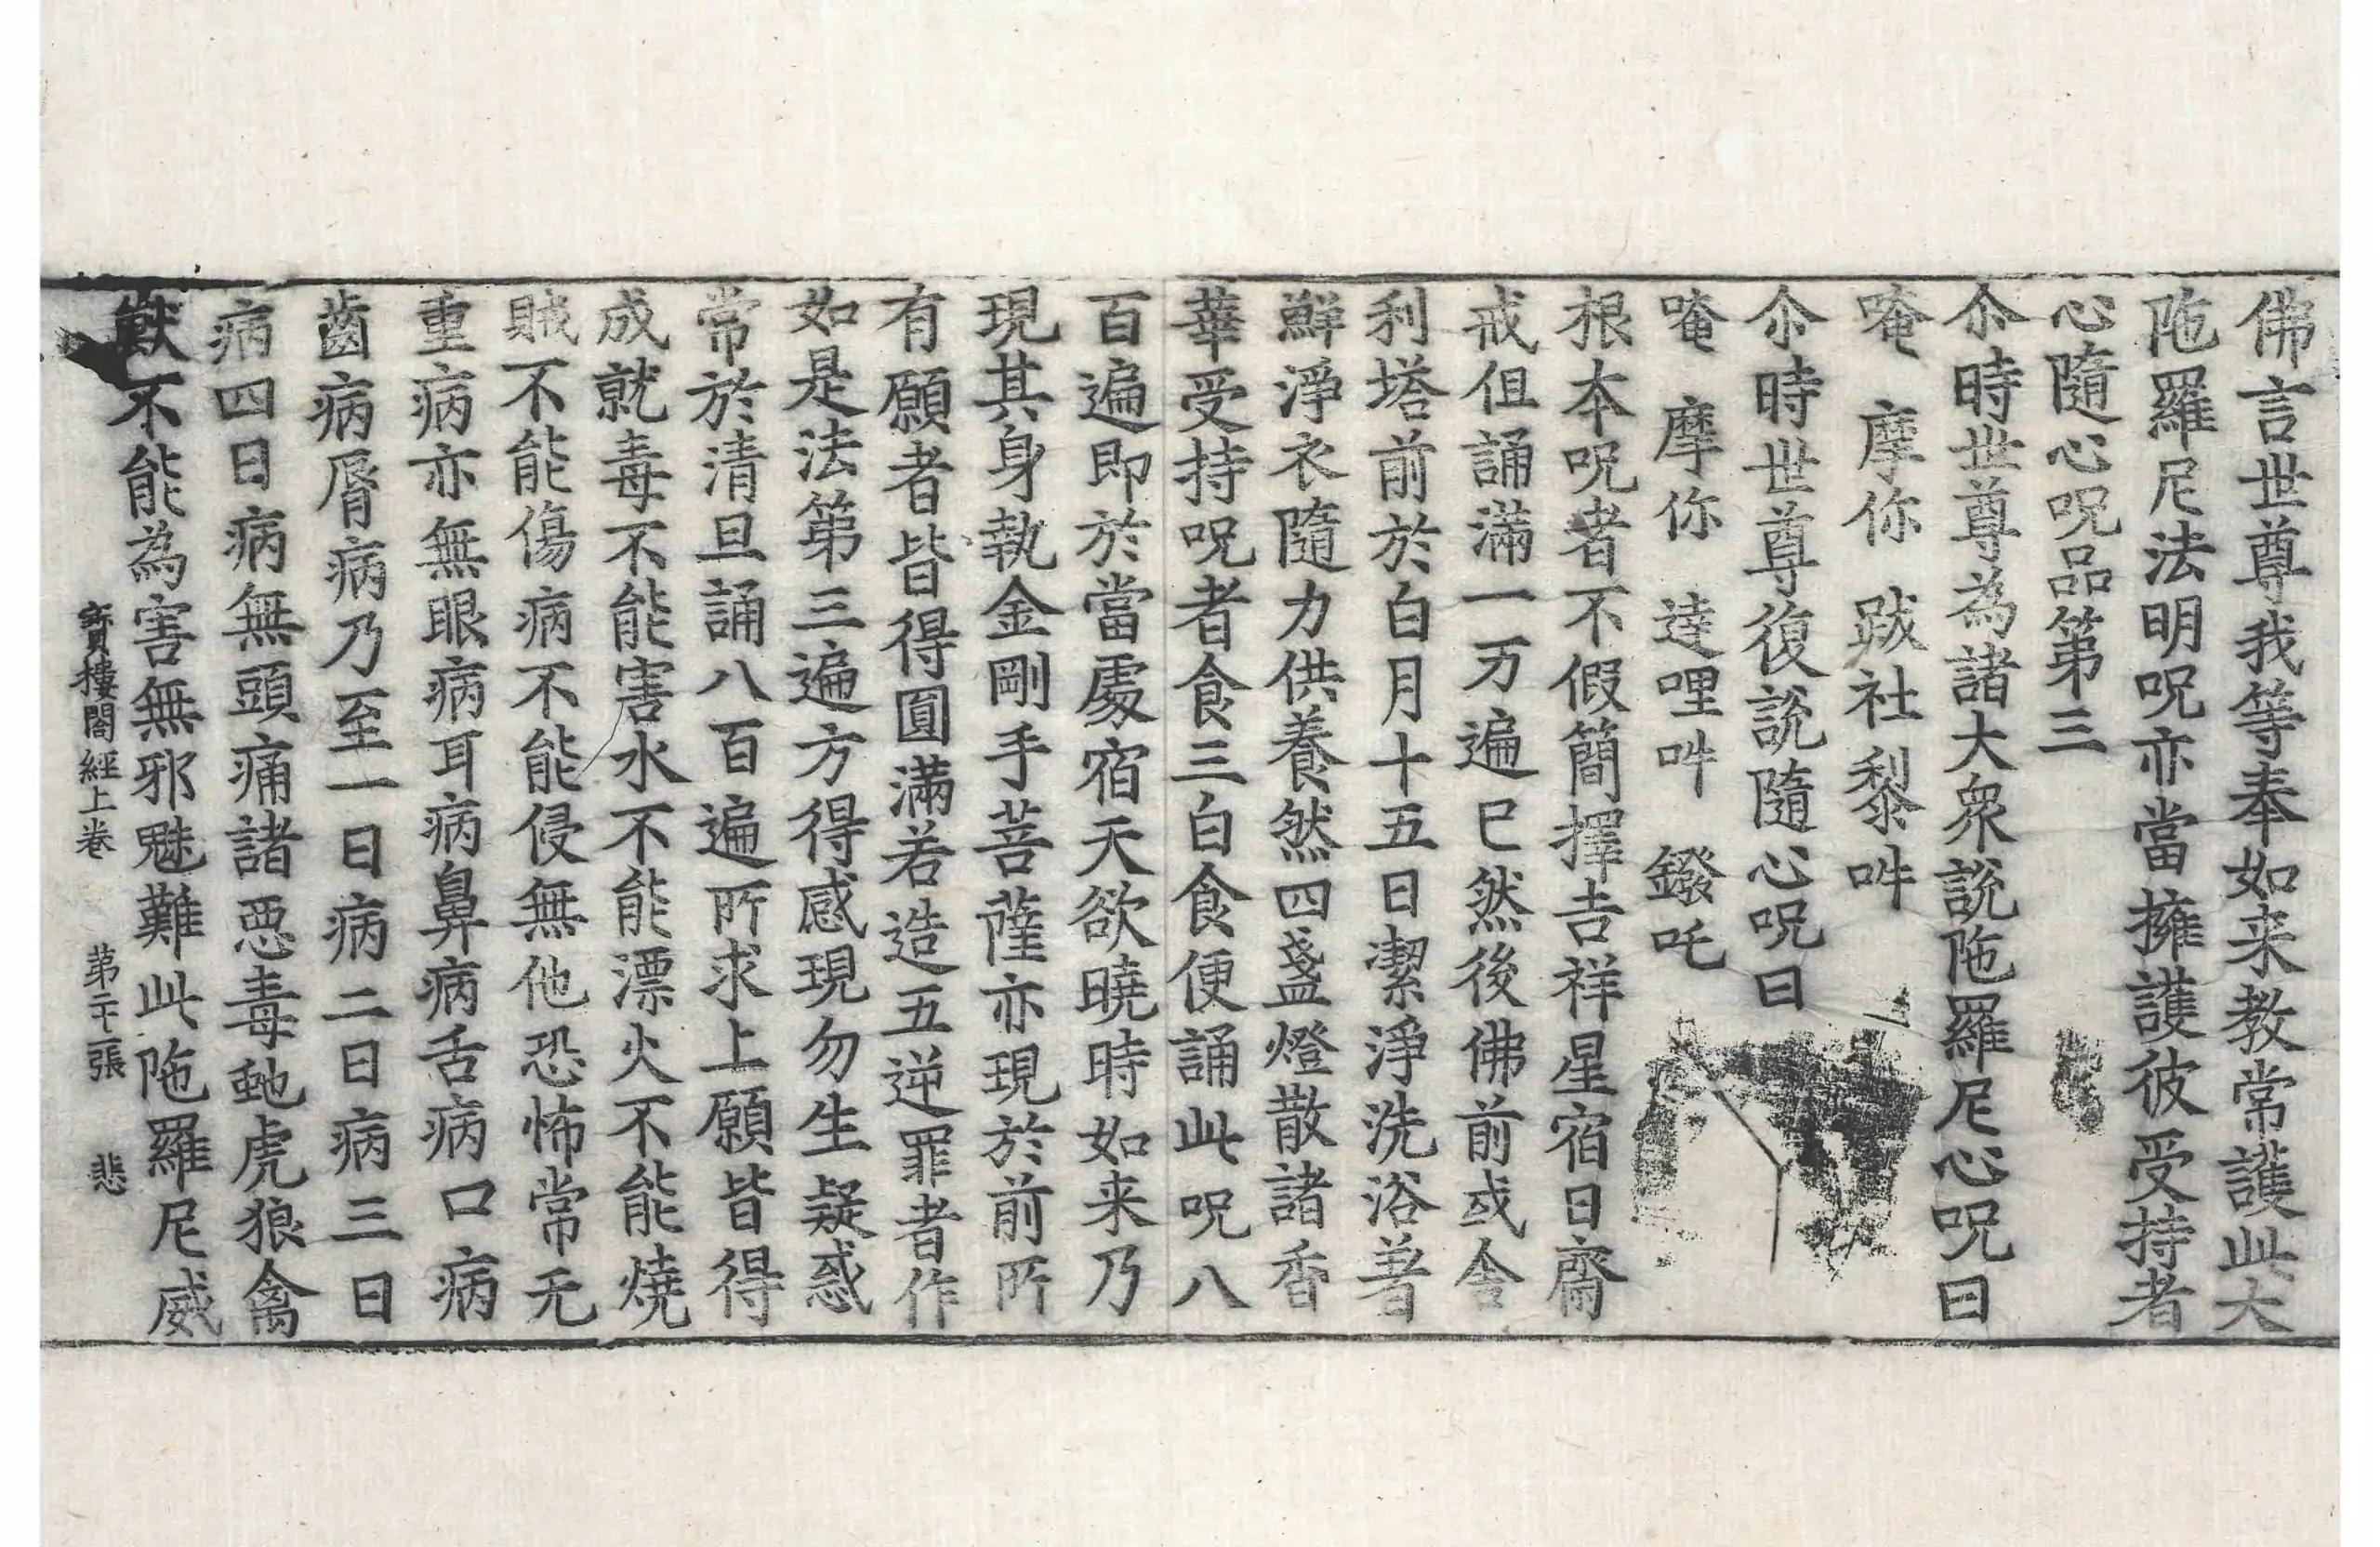 佛言世尊我等奉如来教常護此大
陁羅尼法明呪亦當擁護彼受持者
心隨心呪品第三
尒時世尊為諸大衆說陁羅尼心呪曰
唵 摩你 跋社黎 吽
尒時世尊復說隨心呪曰
唵 摩你 達哩吽 鏺吒
根本呪者不假簡擇吉祥星宿日齋
戒但誦滿一万遍已然後佛前或舍
利塔前於白月十五日潔淨洗浴著
鮮淨衣隨力供養然四盞燈散諸香
華受持呪者食三白食便誦此呪八
百遍即於當處宿天欲曉時如来乃
現其身執金剛手菩薩亦現於前所
有願者皆得圓滿若造五逆罪者作
如是法第三遍方得感現勿生疑惑
常於清旦誦八百遍所求上願皆得
成就毒不能害水不能漂火不能燒
賊不能傷病不能侵無他恐怖常无
重病亦無眼病耳病鼻病舌病口病
齒病脣病乃至一日病二日病三日
病四日病無頭痛諸惡毒虵虎狼禽
獸不能為害無邪魅難此陁羅尼威
寶樓閣經上卷 第二十張 悲